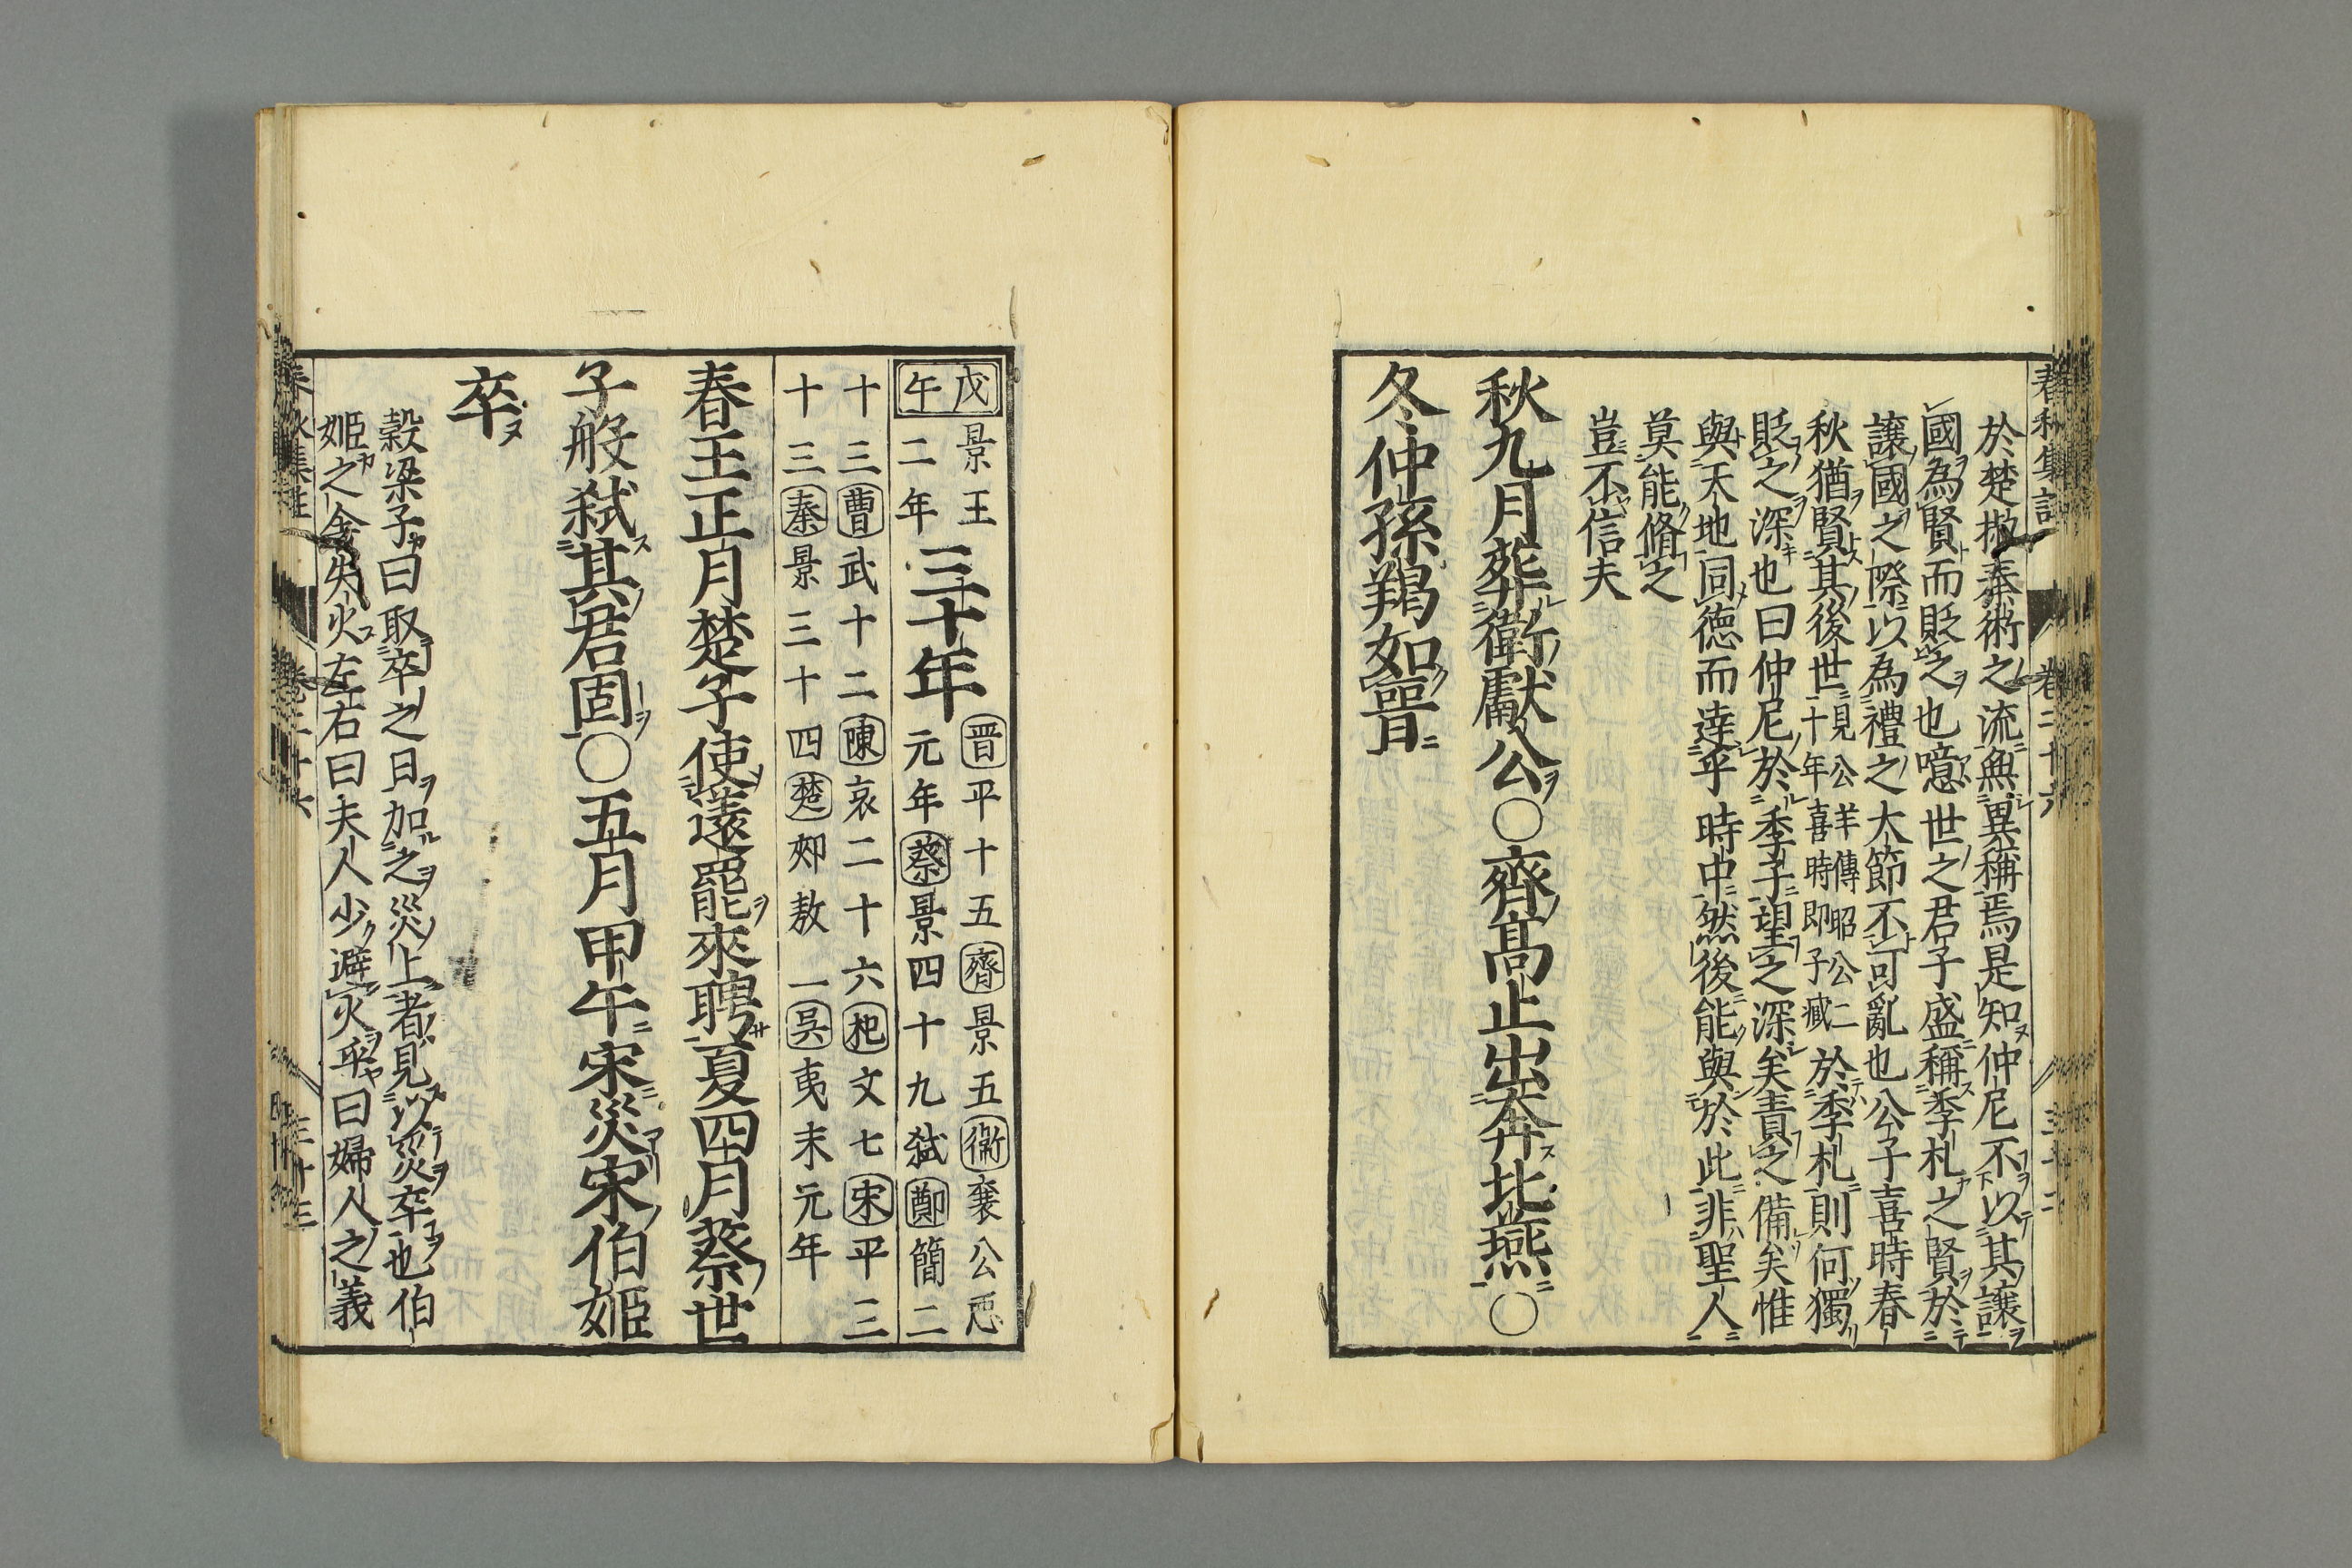 春秋集註 卷二十六
於楚椒秦術之流無異稱焉是知仲尼不以其讓
國為賢而貶之也噫世之君子盛稱季札之賢於
讓國之際以為禮之大節不可亂也公子喜時春
秋猶賢其後世見公羊傳昭公二十年喜時即子臧於季札則何獨
貶之深也曰仲尼於季子望之深矣責之備矣惟
與天地同德而達乎時中然後能與於此非聖人
莫能脩之
豈不信夫
秋九月葬衛獻公〇齊高止出奔北燕〇
冬仲孫羯如晉
戊午景王二年三十年晉平十五齊景五衛襄公惡元年蔡景四十九弒鄭簡二
十三曹武十二陳哀二十六杞文七宋平三
十三秦景三十四楚郟敖一吳夷末元年
春王正月楚子使薳罷來聘夏四月蔡世
子般弒其君固〇五月甲午宋災宋伯姬
卒
穀梁子曰取卒之日加之災上者見以災卒也伯
姬之舍失火左右曰夫人少避火乎曰婦人之義
春秋集註 卷二十六 三十三